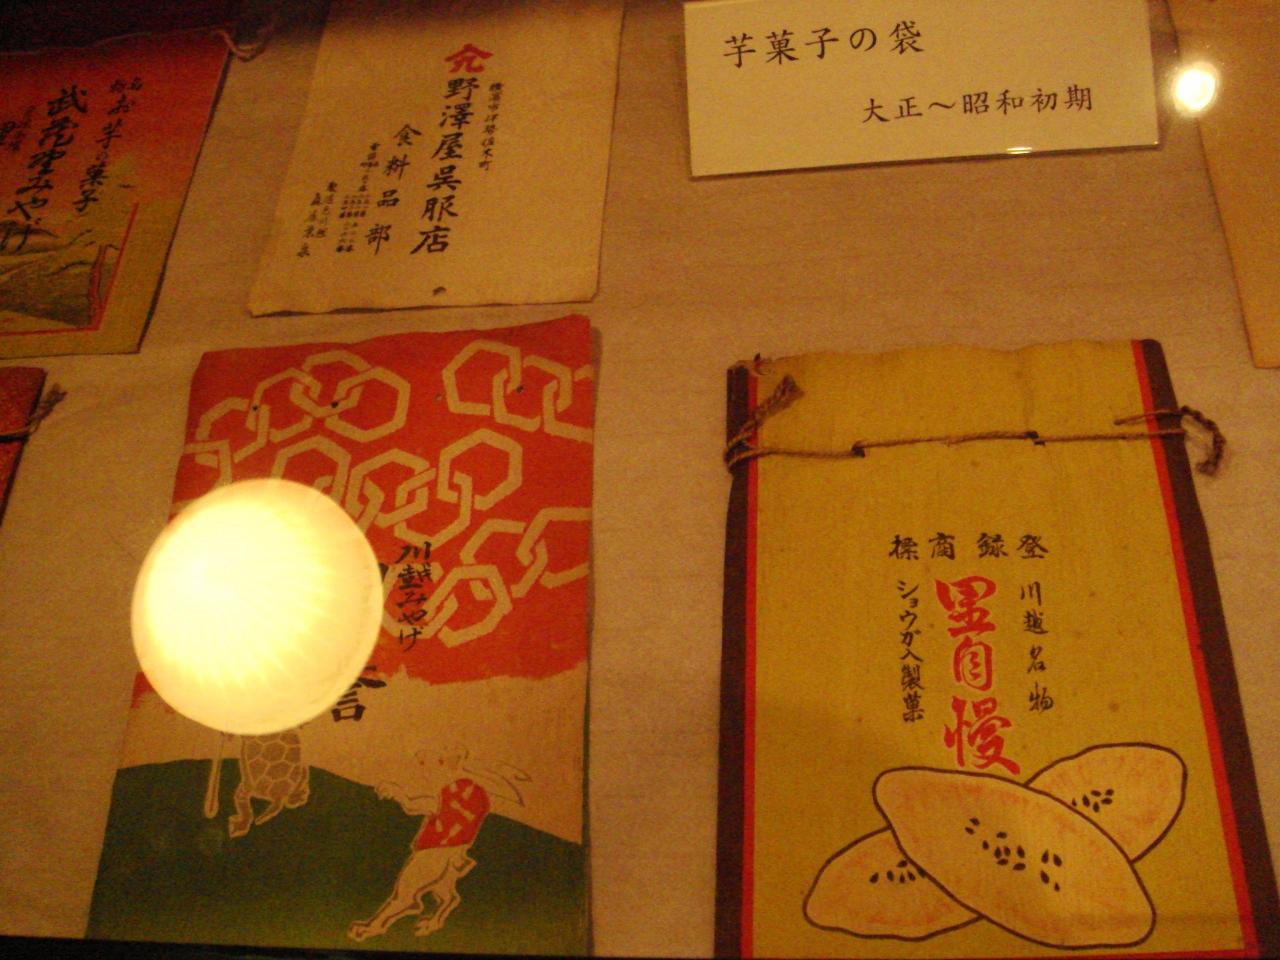 芋菓子の袋
大正～昭和初期
横濱市伊勢佐木町
野澤屋呉服店
食料品部
名物お芋の菓子
武蔵野みやげ
川越みやげ
誉
登録商標
川越名物
里自慢
ショウガ入製菓